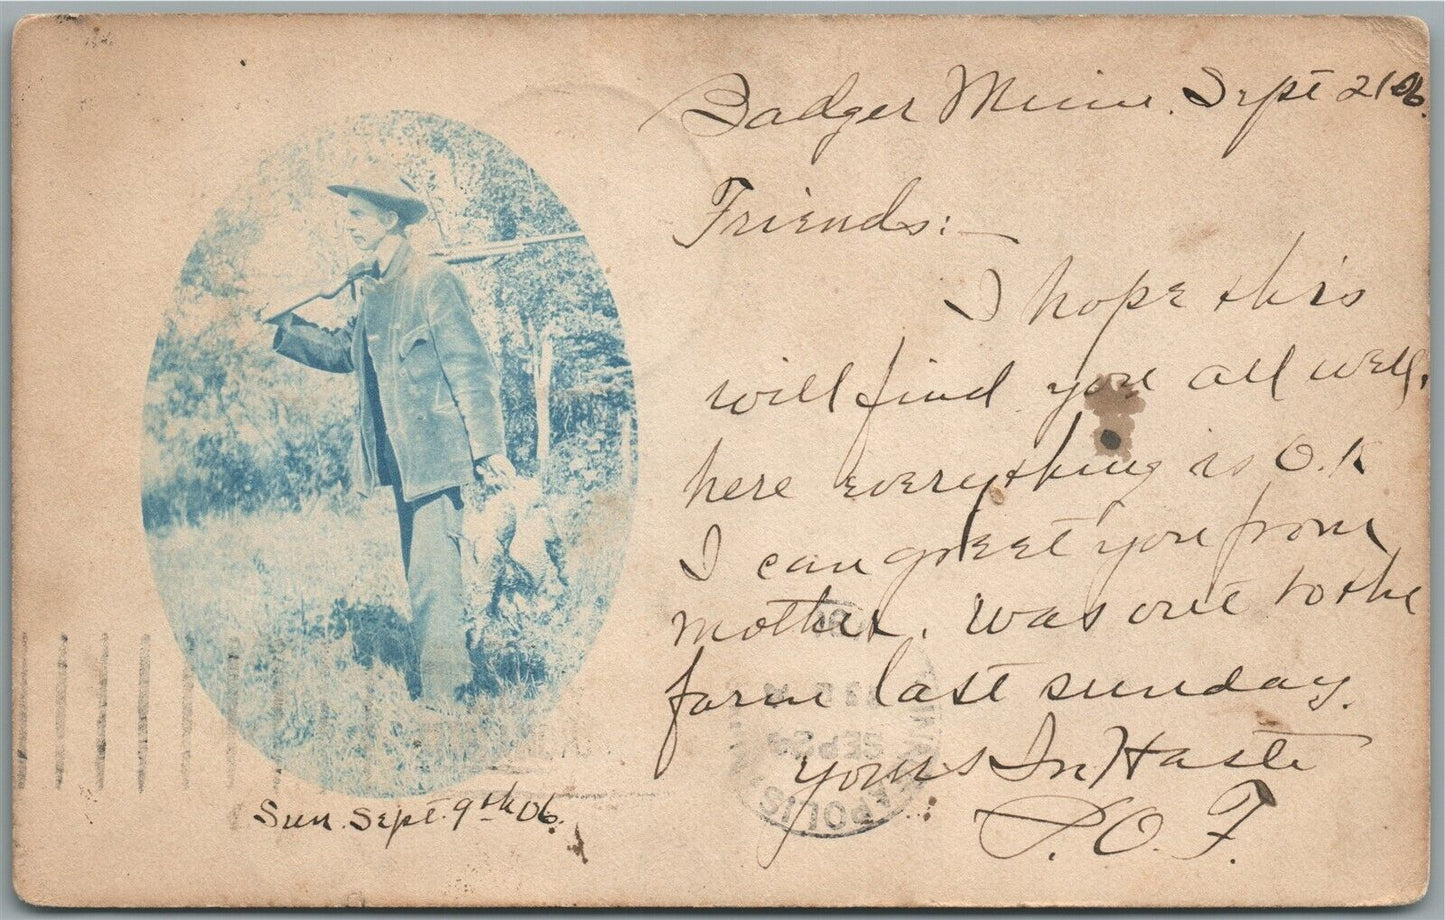 Badger Minn. Sept 21 06.
Friends:—
I hope this
will find you all well,
here everything is O.K
I can greet you from
mother. Was out to the
farm last sunday.
yours In Haste
P.O.F.
Sun. Sept. 9th 06.
SEP